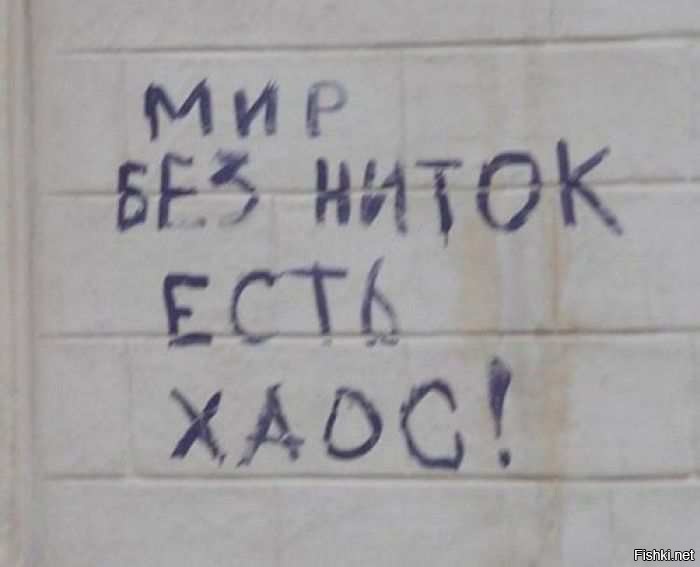 МИР
БЕЗ НИТОК
ЕСТЬ
ХАОС!
Fishki.net